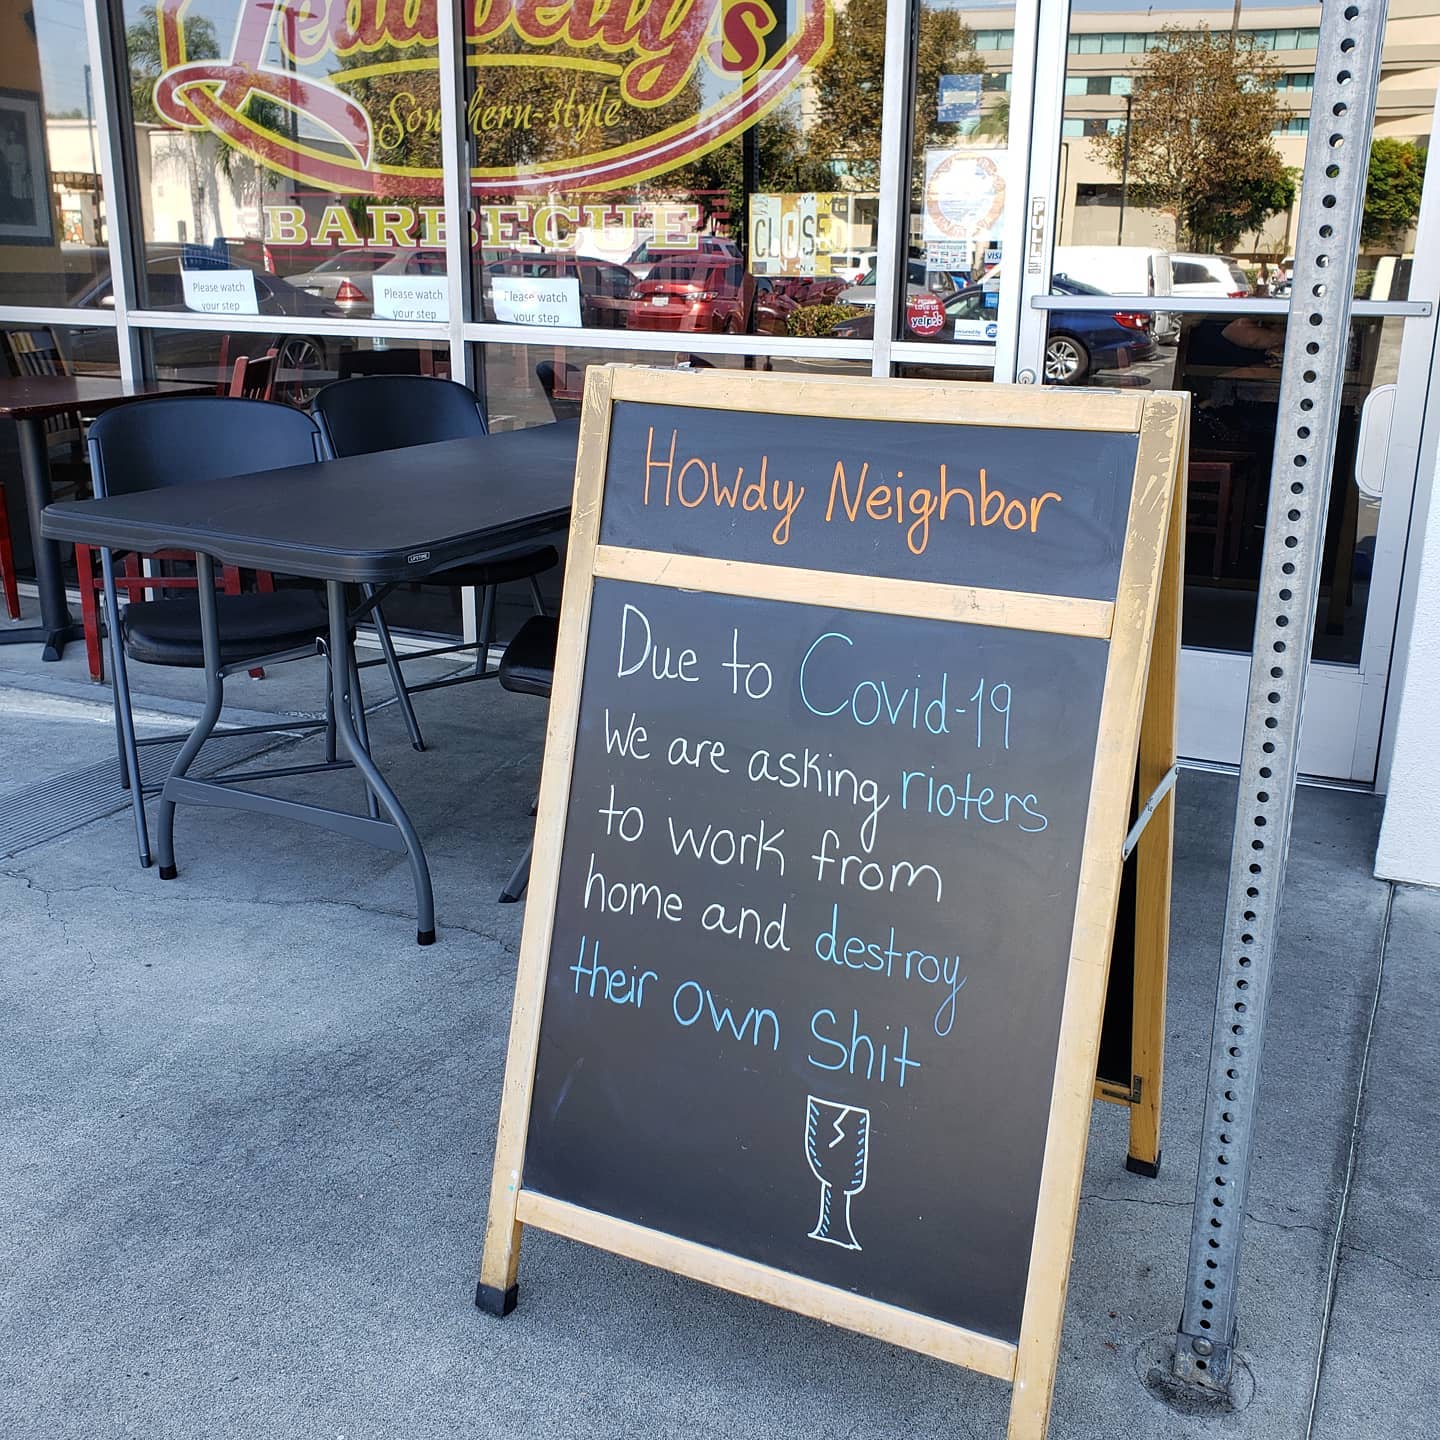 Leadbelly's
Southern-style
BARBECUE
CLOSED
Please watch
your step
Please watch
your step
Please watch
your step
PULL
VISA
yelp
LIFETIME
Howdy Neighbor
Due to Covid-19
We are asking rioters
to work from
home and destroy
their own Shit